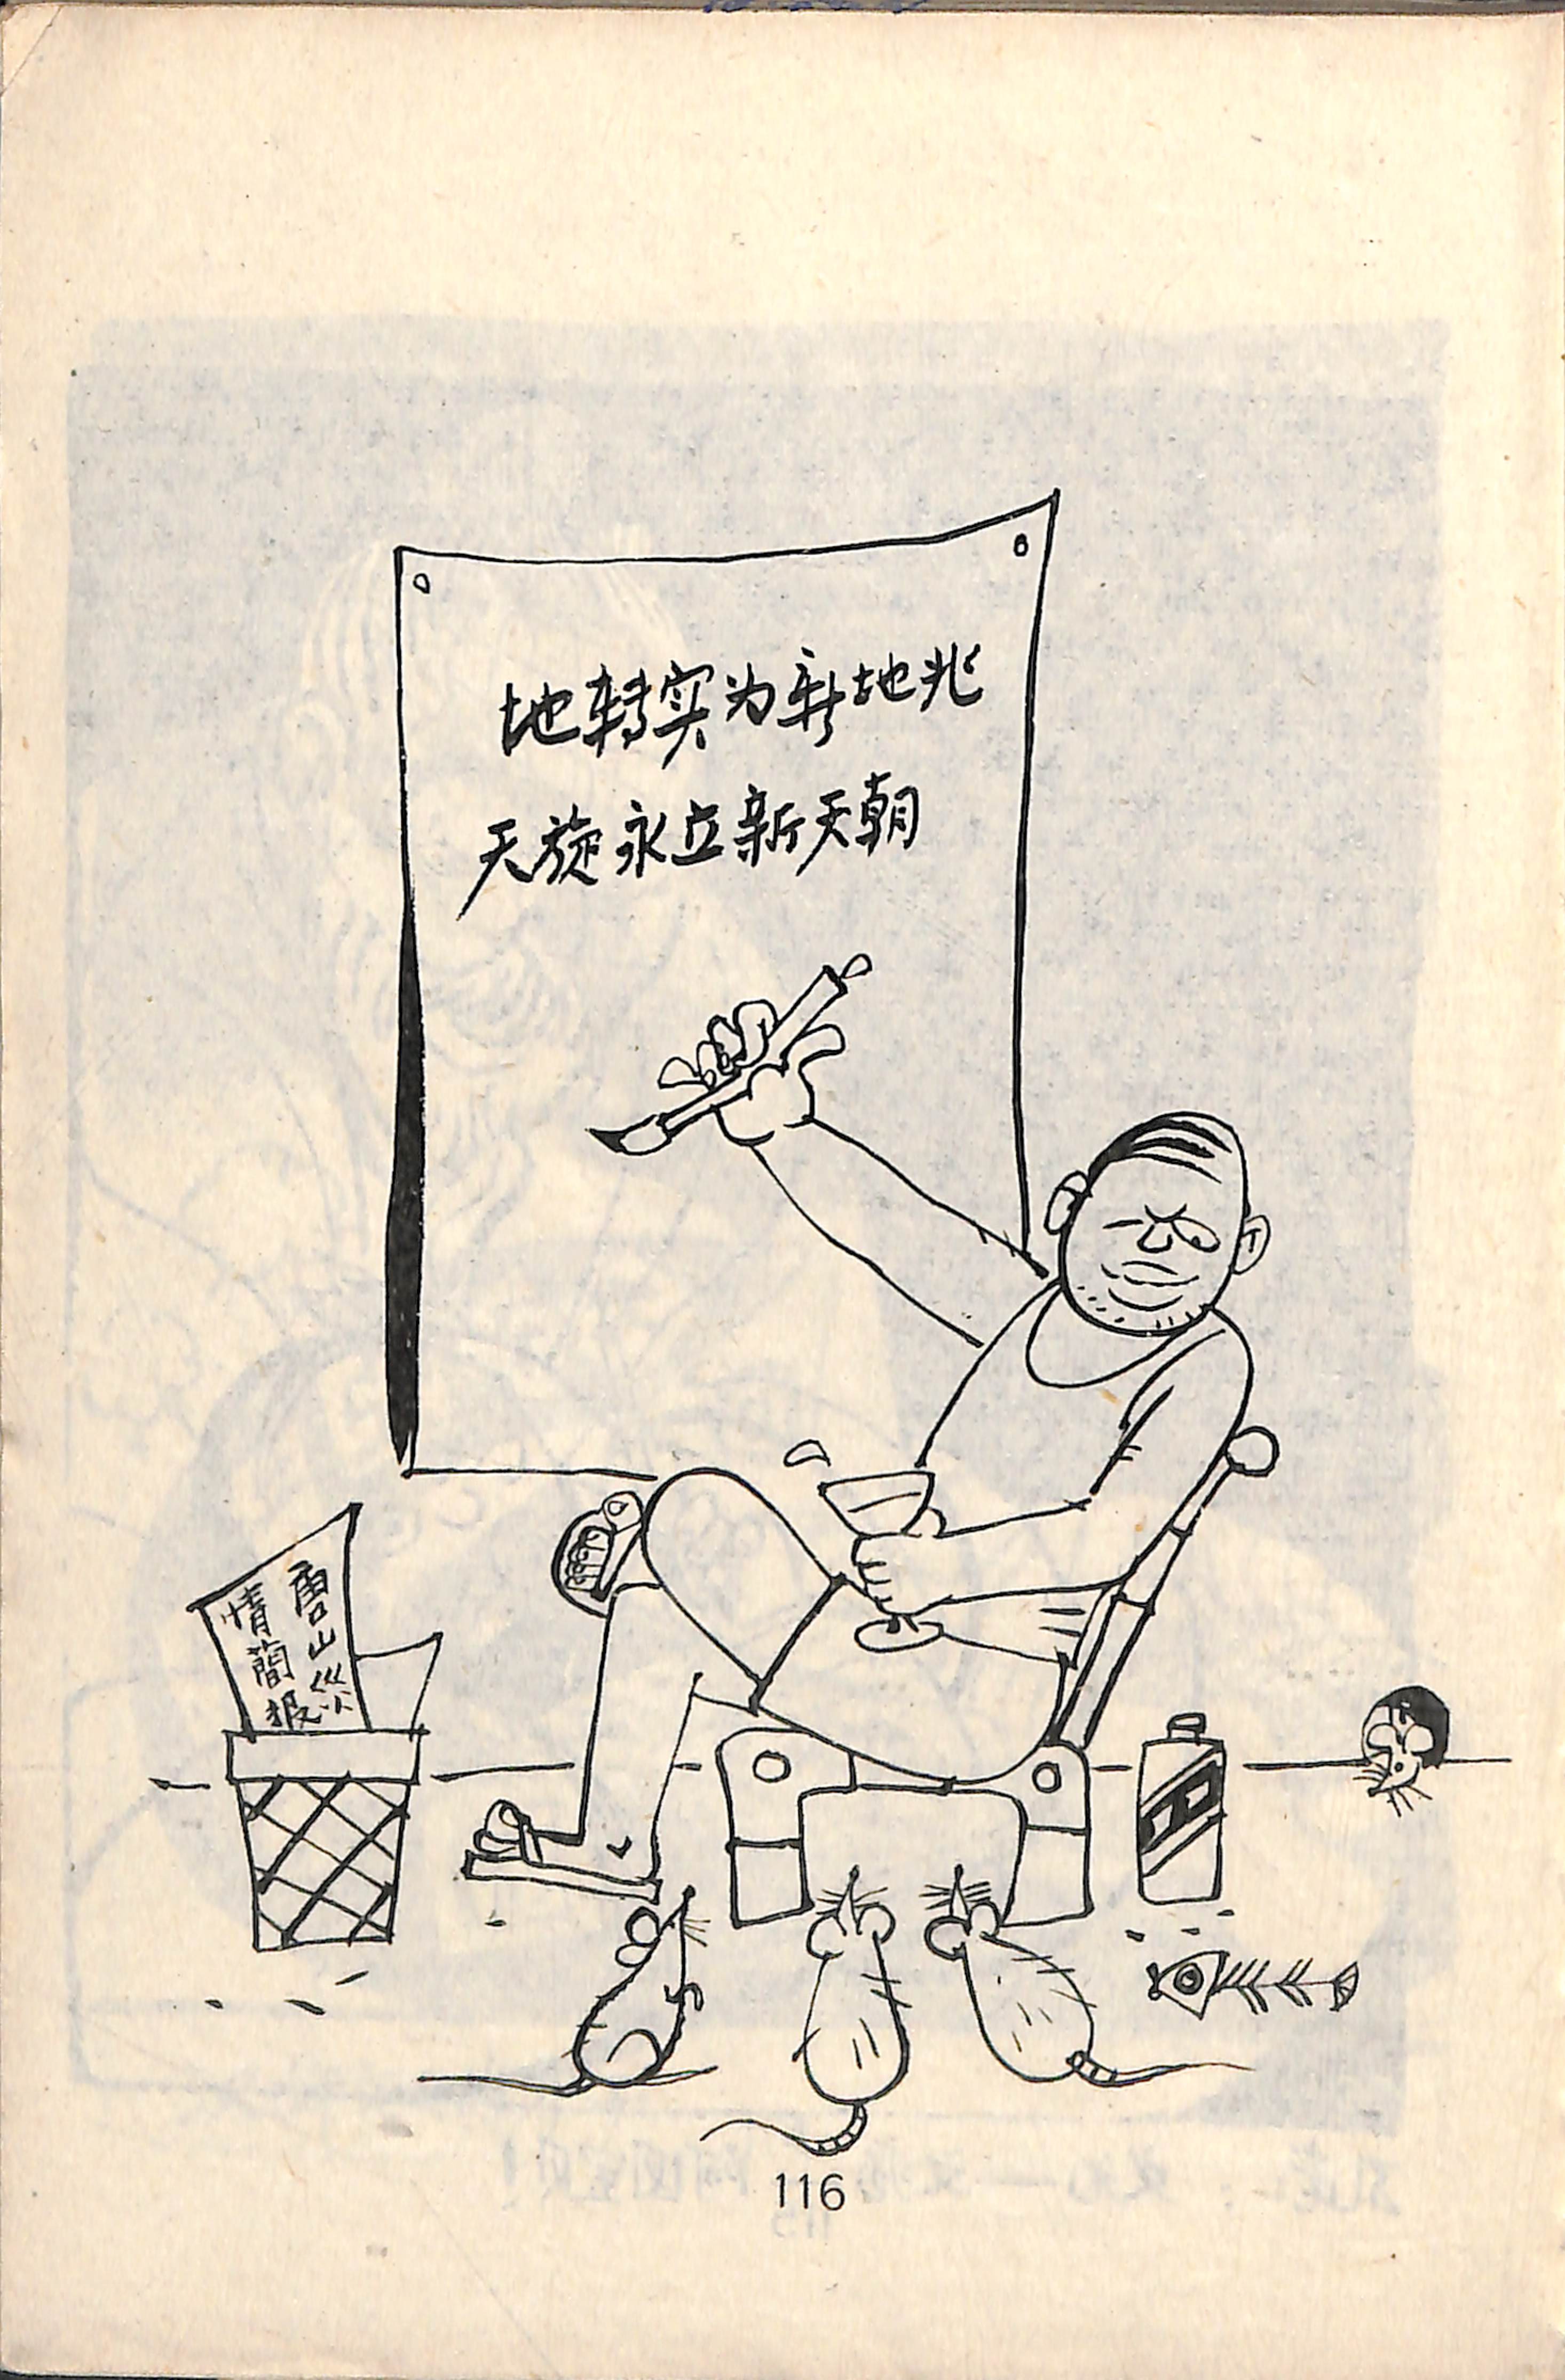 地转实为新地兆
天旋永立新天朝
唐山災
情簡报
116